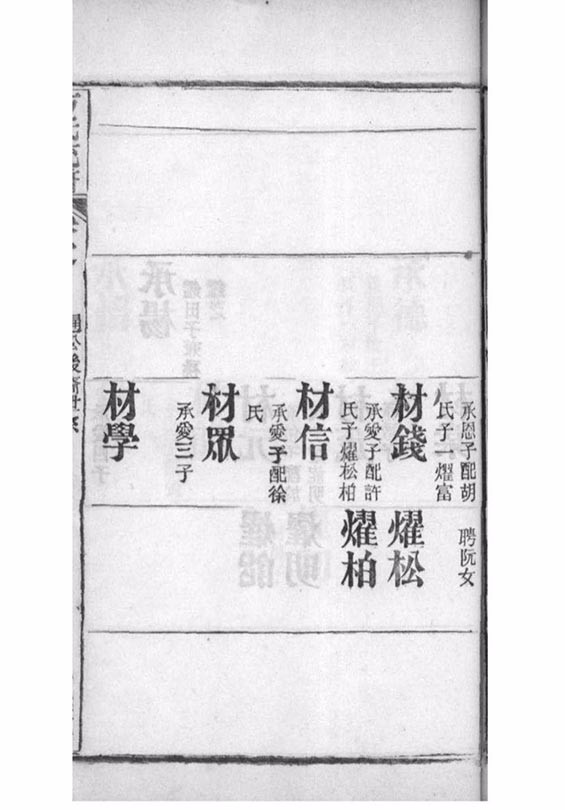 承恩子配胡
氏子燿富
聘阮女
材錢
燿松
承愛子配許
氏子燿松柏
燿柏
材信
承愛子配徐
氏
材眾
承愛三子
材學